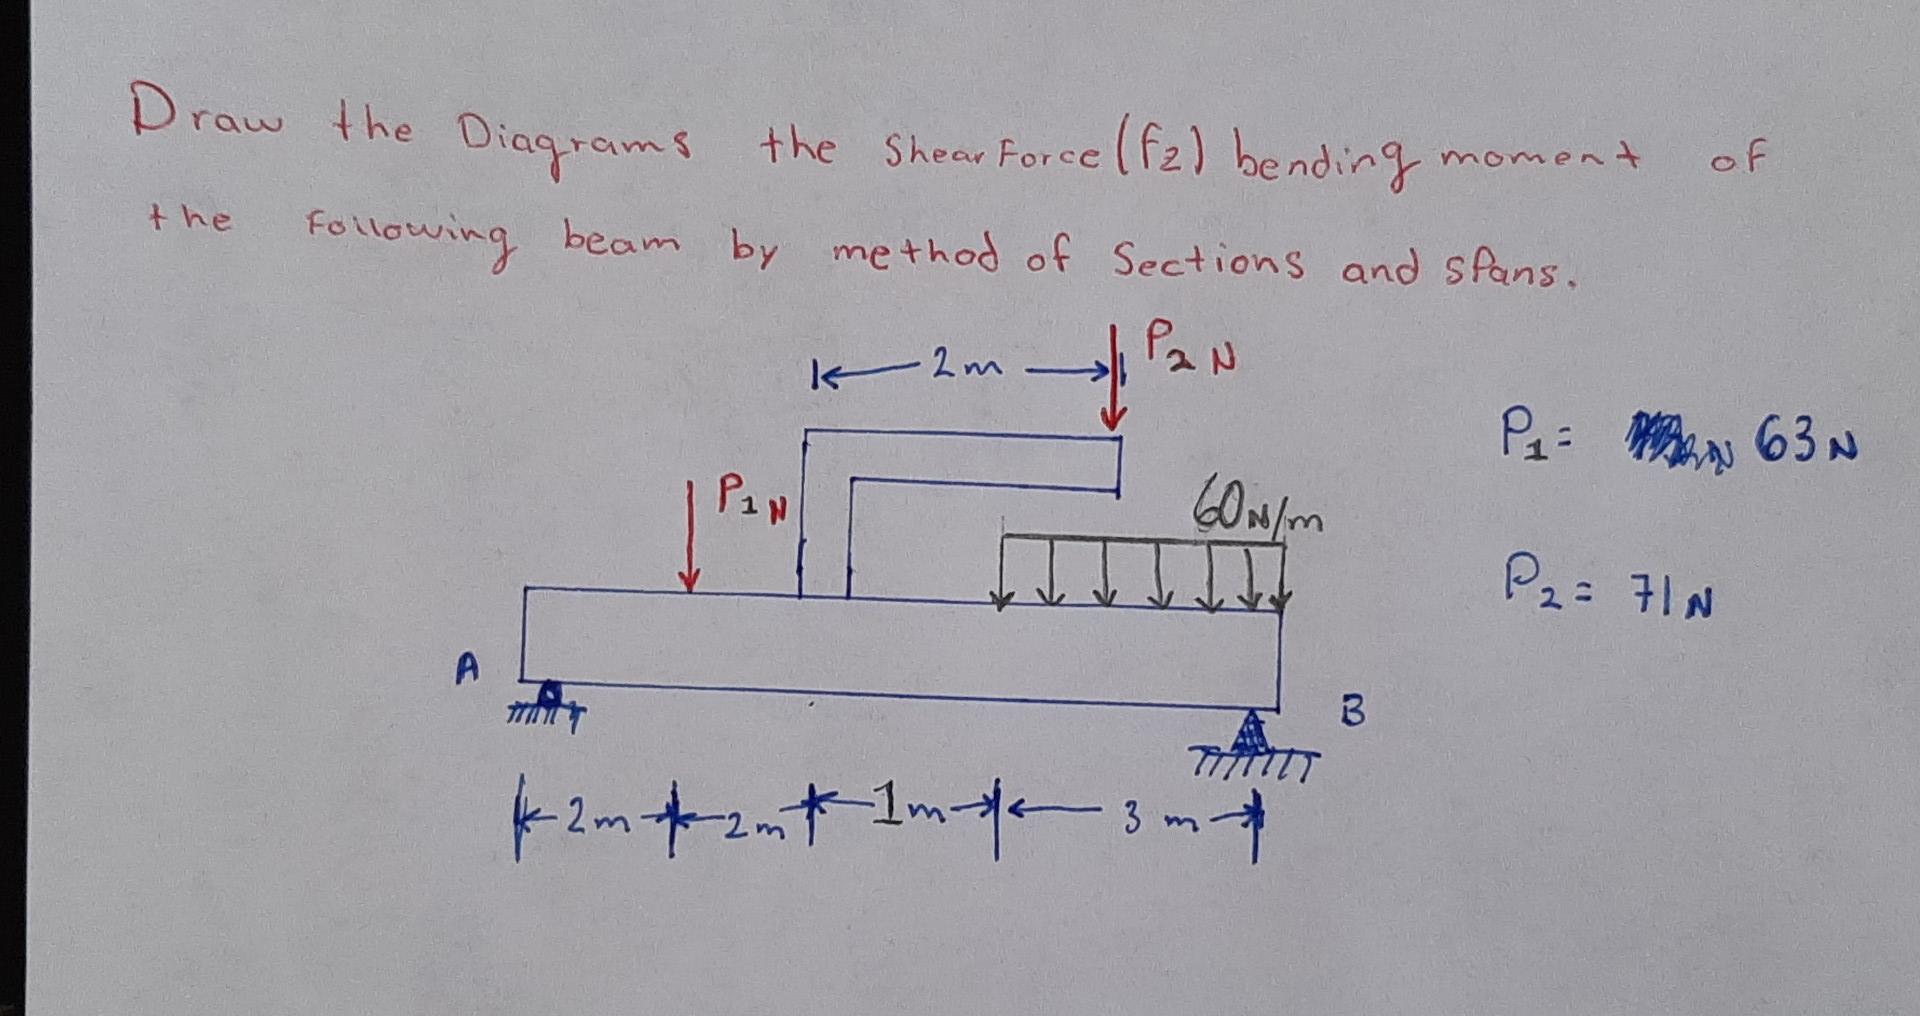 Draw the Diagrams the Shear Force (Fz) bending moment of
the Following beam by method of Sections and spans.
2m
P2 N
P1 N
60N/m
P1 = 63N
P2 = 71N
A
B
2m 2m 1m 3m